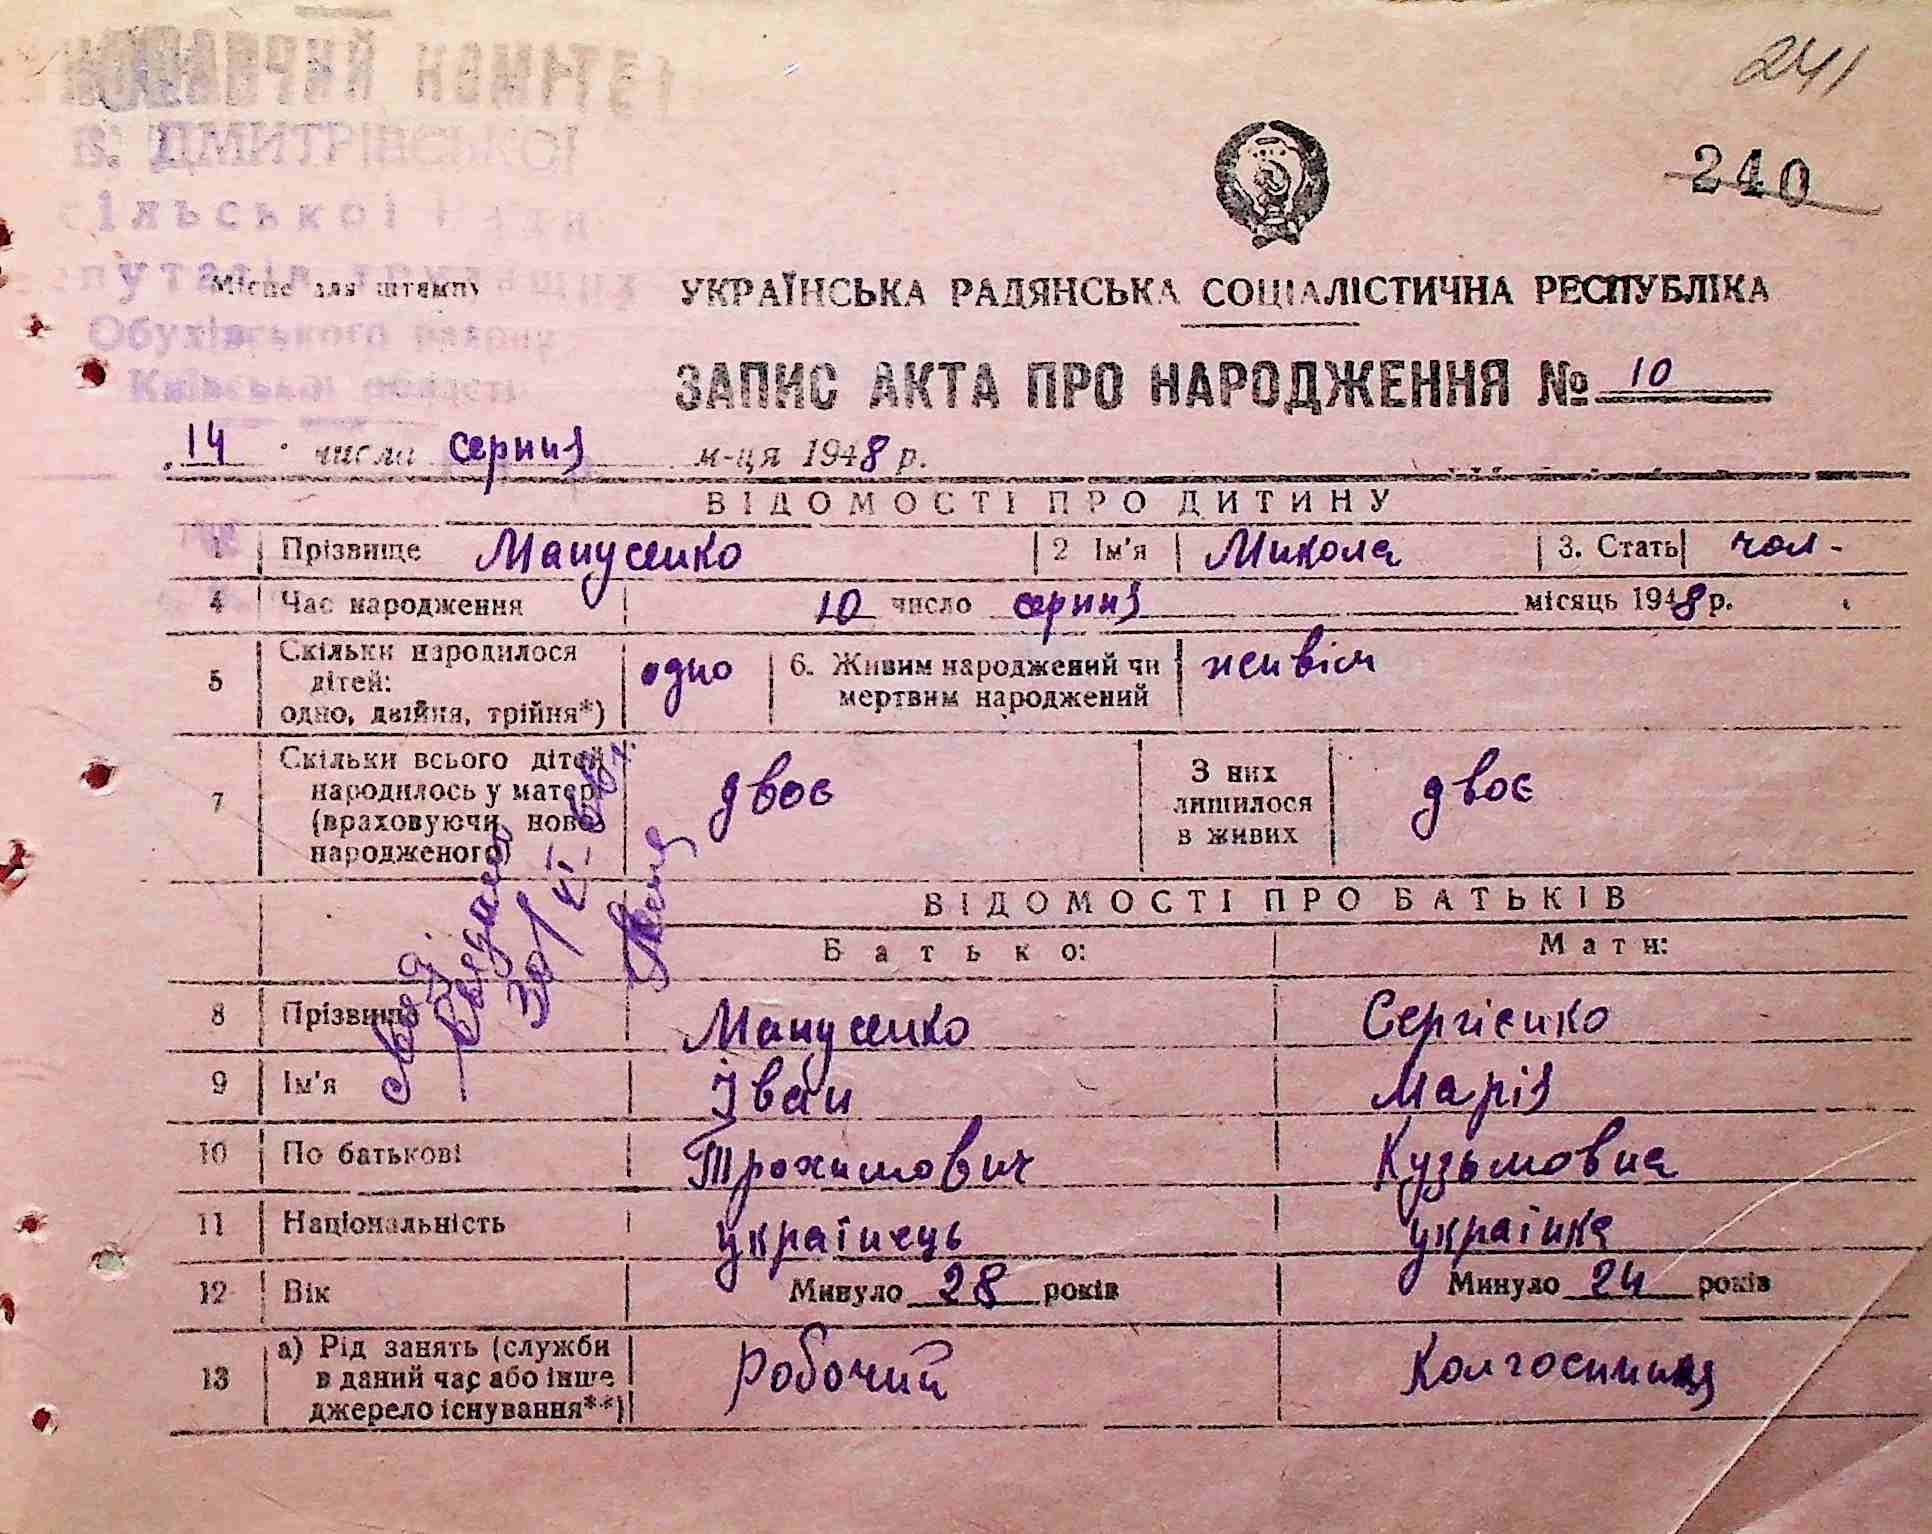 241
240
В. ДМИТРІВСЬКОЇ
сільської Ради
депутатів трудящих
Обухівського району
Київської області
Місце для штампу
УКРАЇНСЬКА РАДЯНСЬКА СОЦІАЛІСТИЧНА РЕСПУБЛІКА
ЗАПИС АКТА ПРО НАРОДЖЕННЯ № 10
14 числа серпня м-ця 1948 р.
ВІДОМОСТІ ПРО ДИТИНУ
1 Прізвище Мацусенко 2 Ім'я Микола 3. Стать чол-
4 Час народження 10 число серпня місяць 1948 р.
5 Скільки народилося дітей: одно, двійня, трійня*) одно 6. Живим народжений чи мертвим народжений живім
7 Скільки всього дітей народилось у матері (враховуючи новонародженого) двоє З них лишилося в живих двоє
ВІДОМОСТІ ПРО БАТЬКІВ
Батько: Мати:
8 Прізвище Мацусенко Сергієнко
9 Ім'я Іван Марія
10 По батькові Трохимович Кузьмовна
11 Національність українець українка
12 Вік Минуло 28 років Минуло 24 років
13 а) Рід занять (служби в даний час або інше джерело існування**) Робочий Колгоспниця